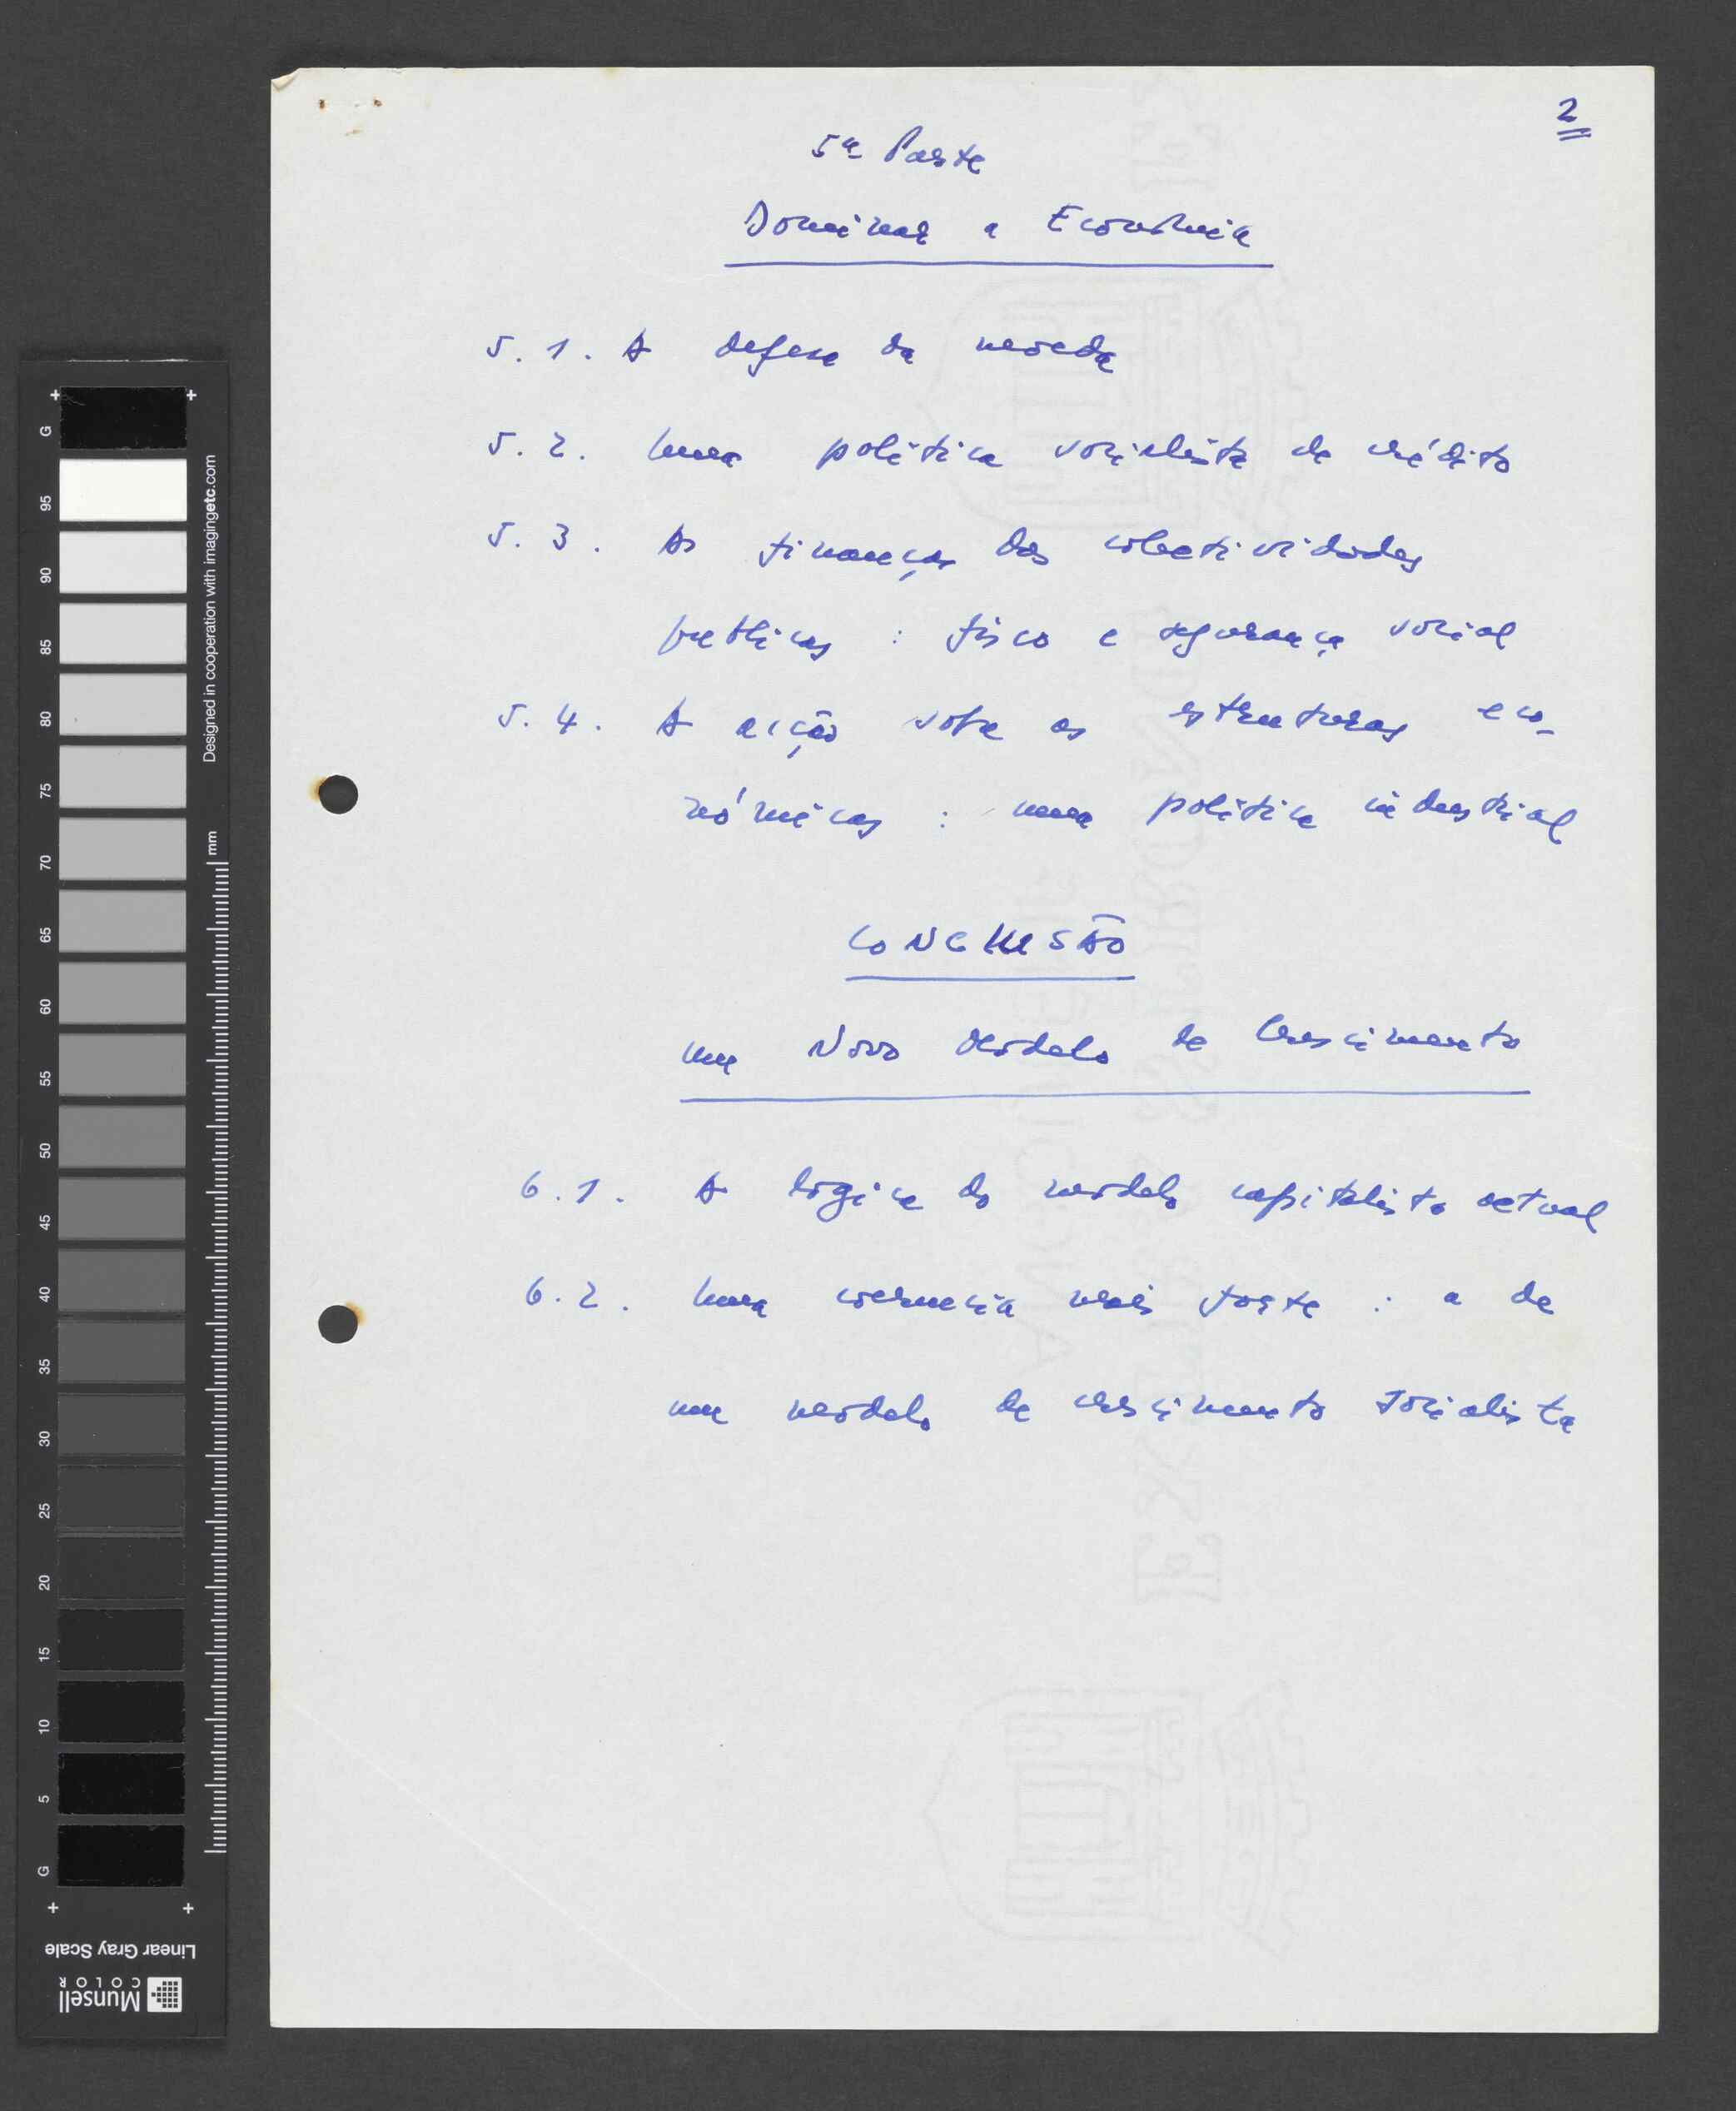 2
5ª Parte
Dominar a Economia
5.1. A defesa da moeda
5.2. Uma política socialista de crédito
5.3. As finanças das colectividades
públicas : fisco e segurança social
5.4. A acção sobre as estruturas eco-
nómicas : uma política industrial
CONCLUSÃO
um Novo Modelo de Crescimento
6.1. A lógica do modelo capitalista actual
6.2. Uma coerência mais forte : a de
um modelo de crescimento socialista
Designed in cooperation with imagingetc.com
mm
G 95 90 85 80 75 70 65 60 55 50 45 40 35 30 25 20 15 10 5 G
Linear Gray Scale
Munsell
COLOR